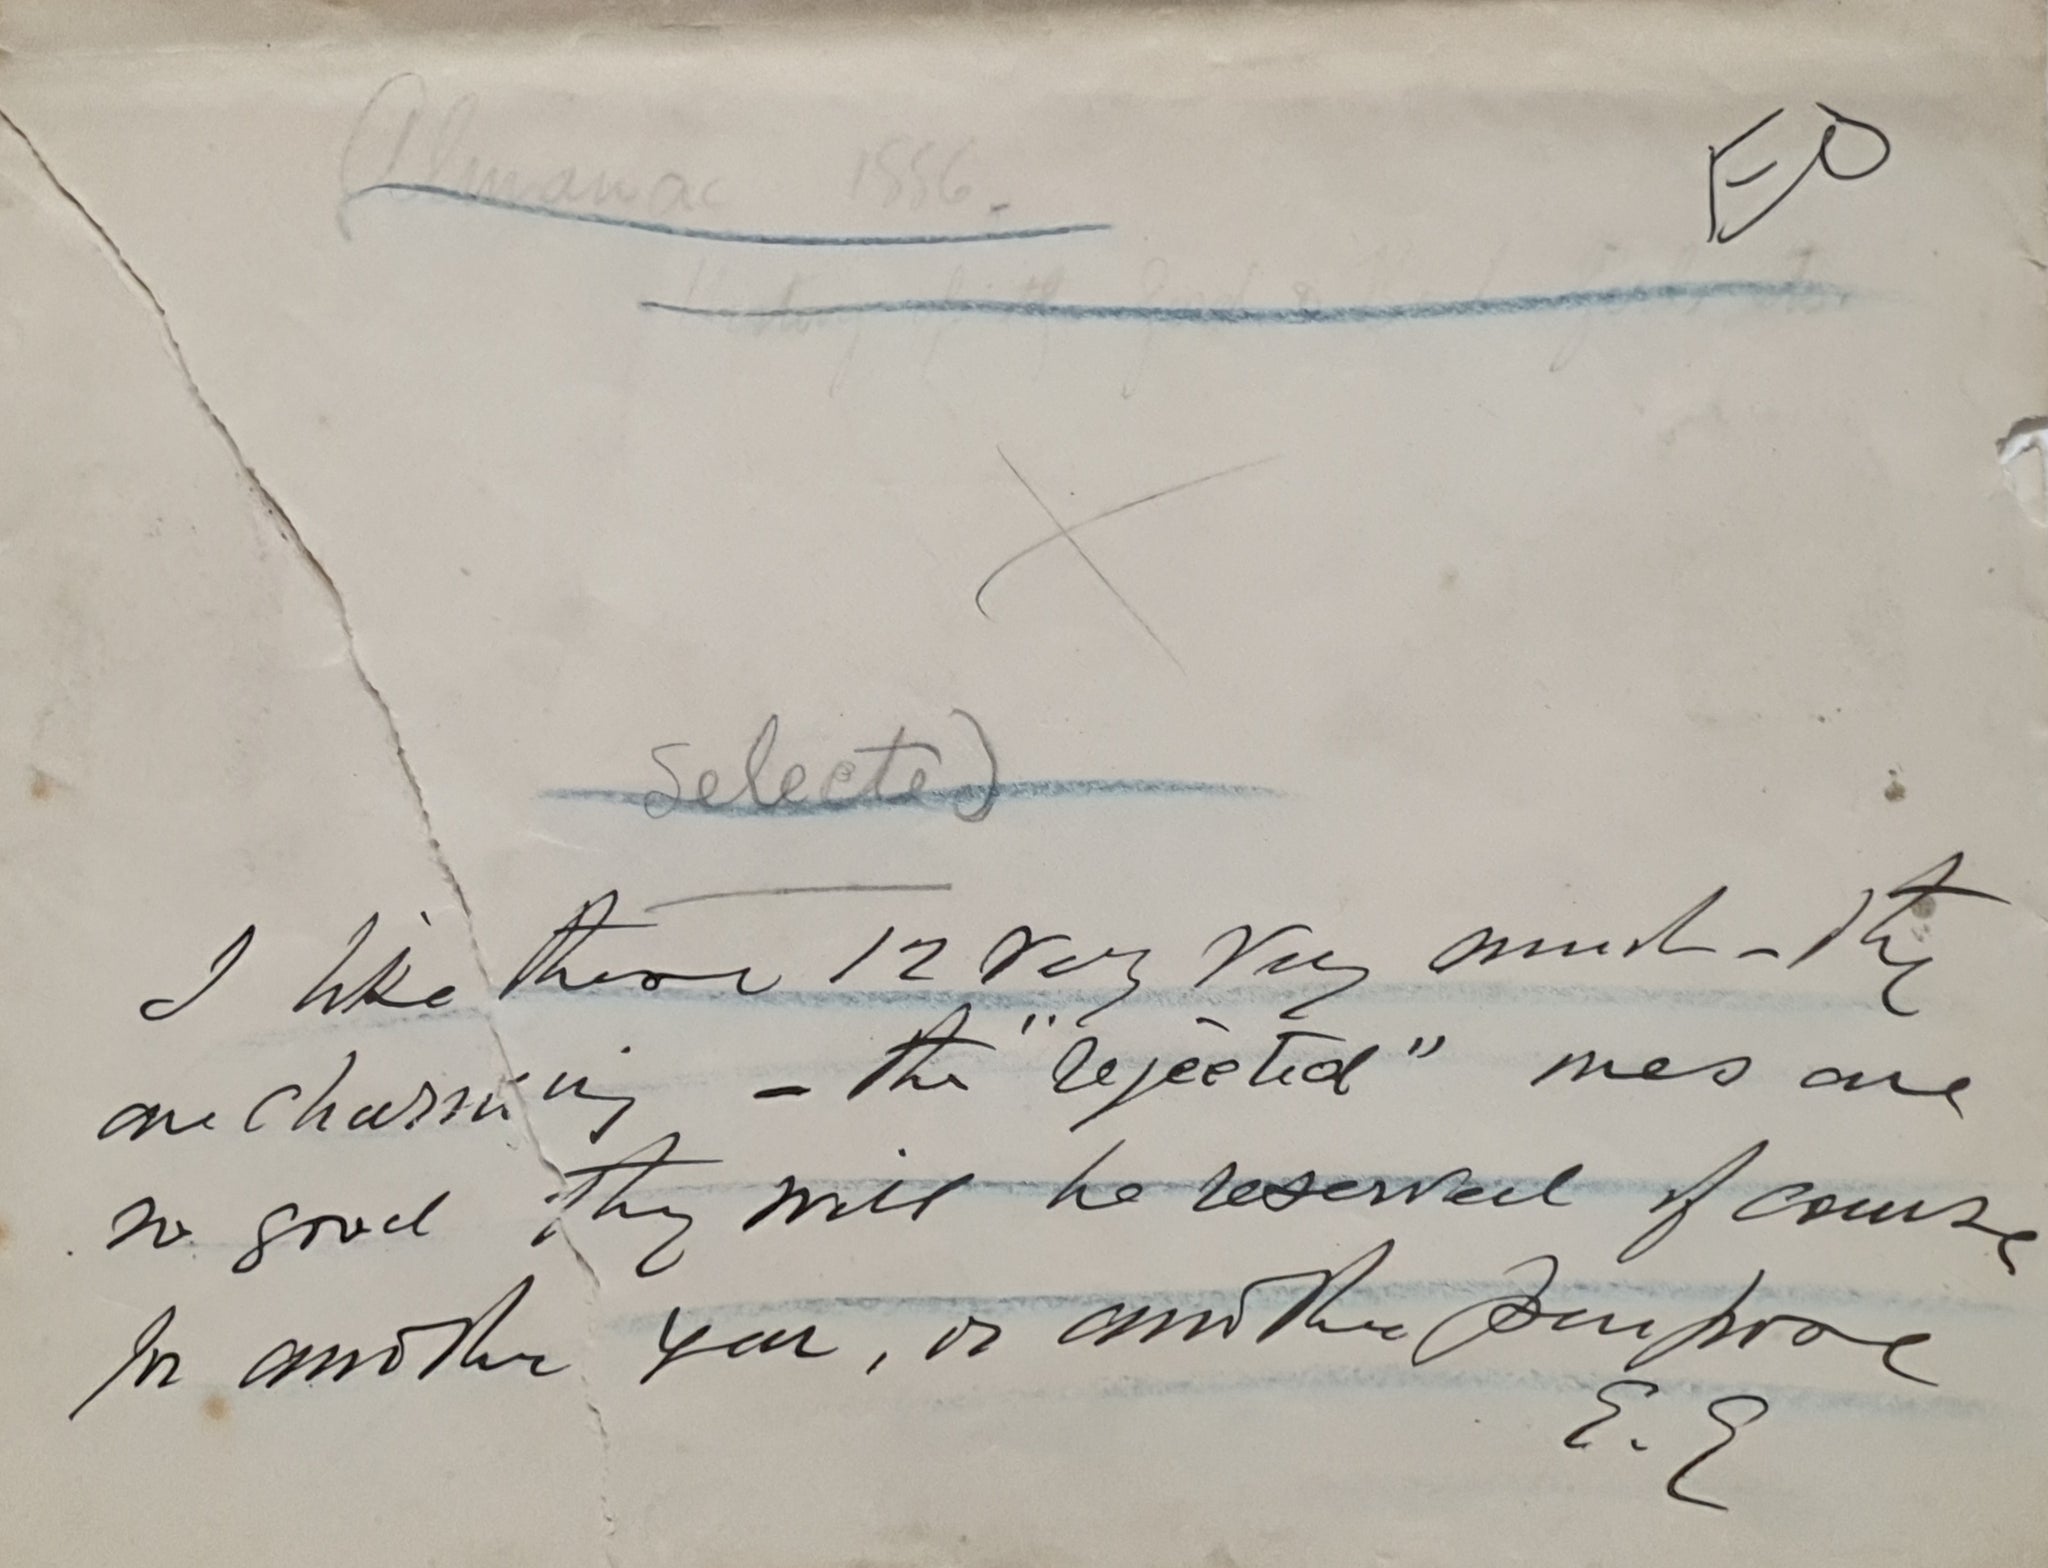 Almanac 1886.
ED
selected
I like these 12 very very much - they
are charming - the "rejected" ones are
so good they will be reserved of course
for another year, or another purpose
E. E